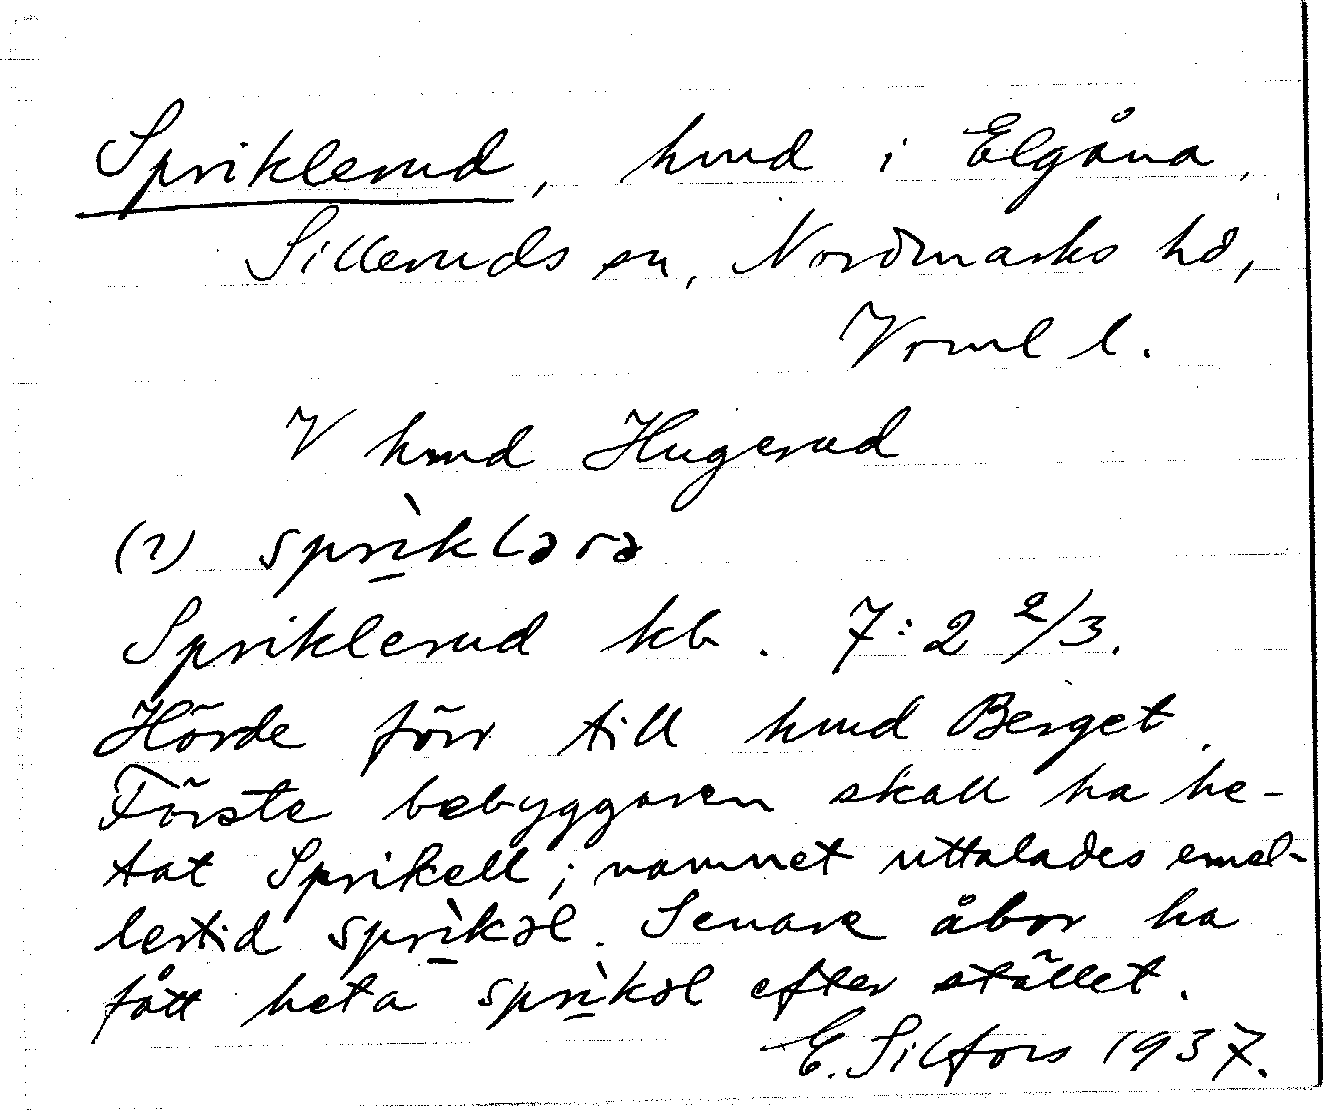 Spriklerud, hmd i Elgåna,
Silleruds sn, Nordmarks hd,
Vrml l.
V hmd Hugerud
(i) sprìklərə
Spriklerud kb. 7:2 2/3.
Hörde förr till hmd Berget.
Förste bebyggaren skall ha he-
tat Sprikell; namnet uttalades emel-
lertid sprìkəl. Senare åbor ha
fått heta sprìkəl efter stället.
E. Silfors 1937.